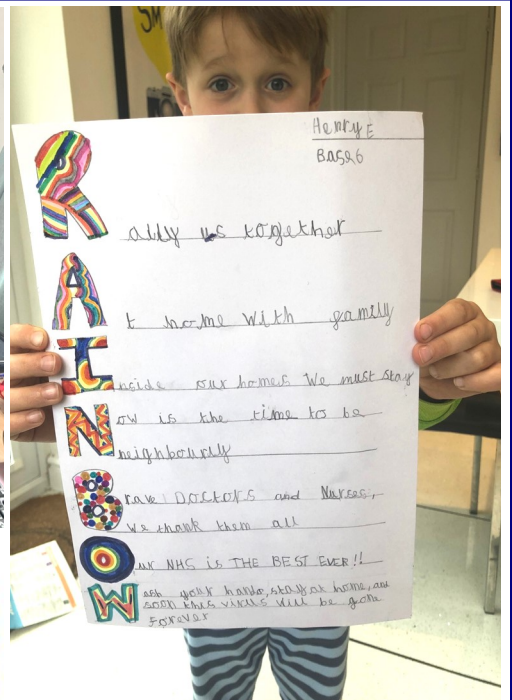 SM
Henry E
Base6
Rally us together
At home with family
Inside our homes We must stay
Now is the time to be
neighbourly
Brave Doctors and Nurses,
We thank them all
Our NHS is THE BEST EVER!!
Wash your hands, stay at home, and
soon this virus will be gone
Forever